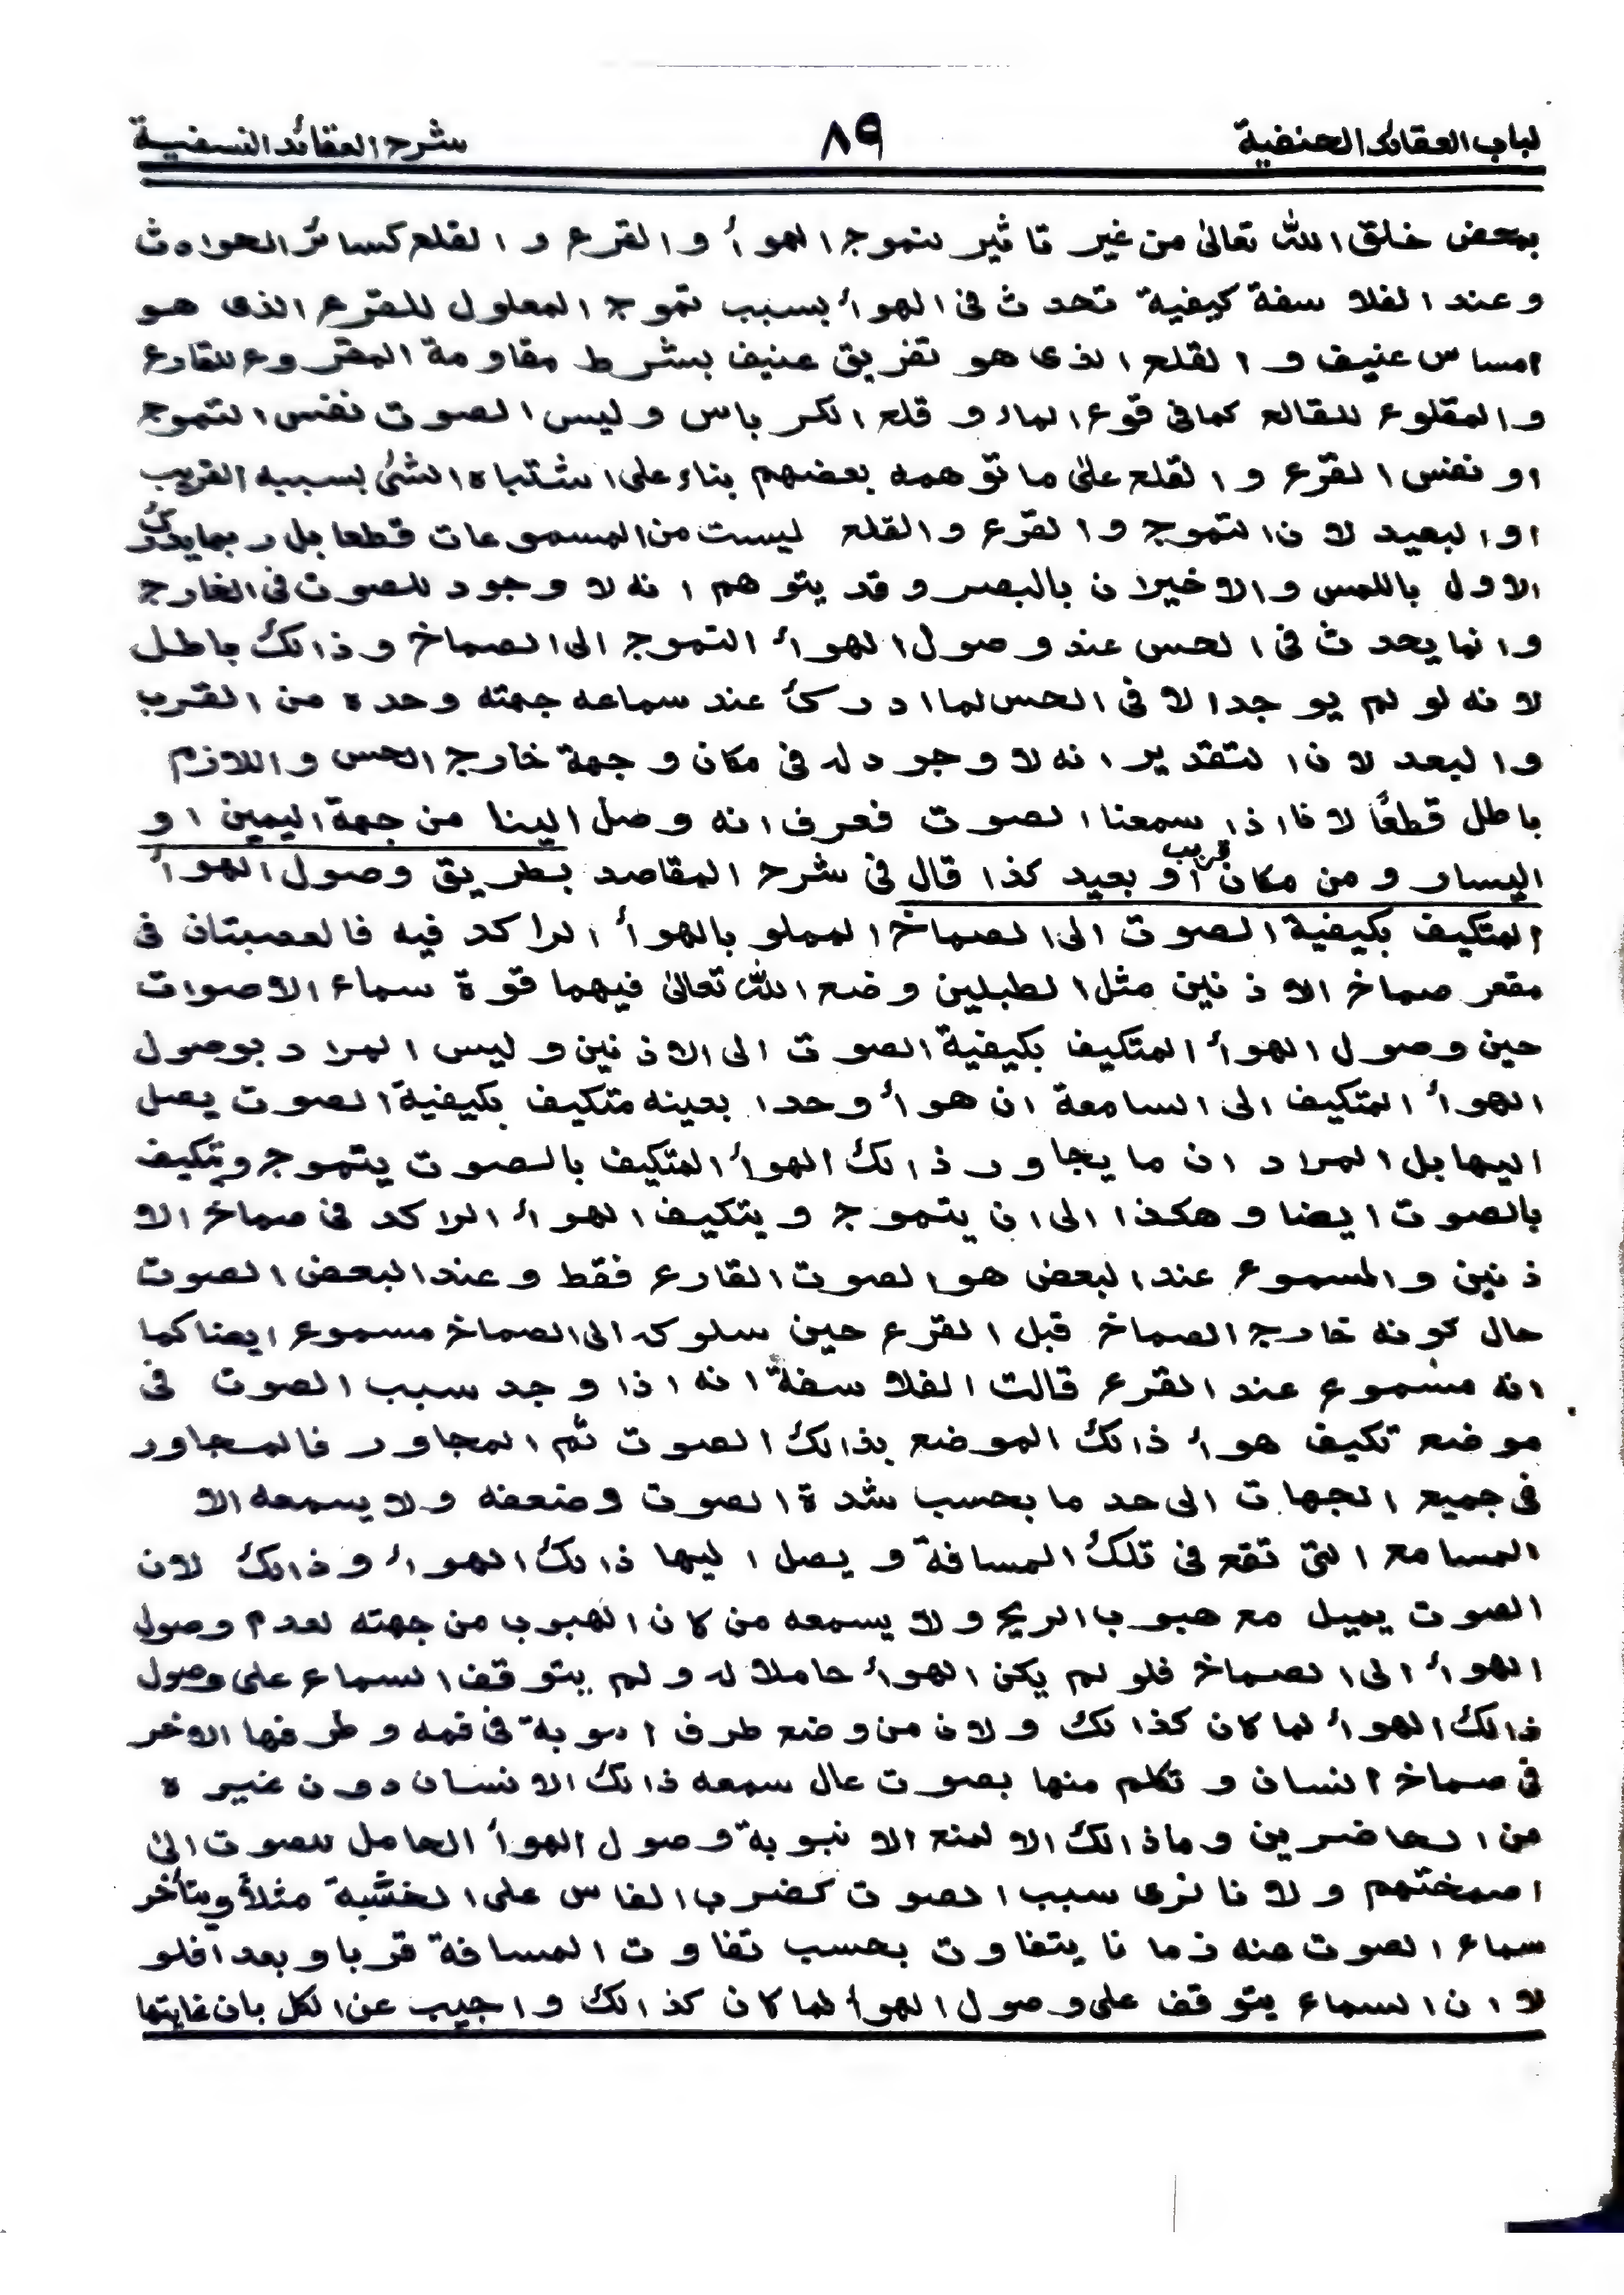 لباب العقائد الحنفية ٨٩ شرح العقائد النسفية
بمحض خلق الله تعالىٰ من غير تاثير لتموج الهوأ والقرع والقلع كسائر الحوادث
وعند الفلاسفة كيفية تحدث فى الهوأ بسبب تموج المعلول للقرع الذى هو
امساس عنيف والقلع الذى هو تفريق عنيف بشرط مقاومة المقروع للقارع
والمقلوع للقالع كما فى قرع الماء وقلع الكرباس وليس الصوت نفس التموج
او نفس القرع والقلع علىٰ ما توهمه بعضهم بناء على اشتباه الشئ بسببه القريب
او البعيد لان التموج والقرع والقلع ليست من المسموعات قطعا بل ربما يدرك
الاول باللمس والاخيران بالبصر وقد يتوهم انه لا وجود للصوت فى الخارج
وانما يحدث فى الحس عند وصول الهوأ التموج الى الصماخ وذالك باطل
لانه لو لم يوجد الا فى الحس لما ادرك عند سماعه جهته وحده من القرب
والبعد لان التقدير انه لا وجود له فى مكان وجهة خارج الحس واللازم
باطل قطعًا لانا اذا سمعنا الصوت فعرف انه وصل الينا من جهة اليمين او
اليسار ومن مكان قريب او بعيد كذا قال فى شرح المقاصد بطريق وصول الهوأ
المتكيف بكيفية الصوت الى الصماخ المملو بالهوأ الراكد فيه فالعصبتان فى
مقعر صماخ الاذنين مثل الطبلين وضع الله تعالىٰ فيهما قوة سماع الاصوات
حين وصول الهوأ المتكيف بكيفية الصوت الى الاذنين وليس المراد بوصول
الهوأ المتكيف الى السامعة ان هوأ وحدا بعينه متكيف بكيفية الصوت يصل
اليها بل المراد ان ما يجاور ذالك الهوأ المتكيف بالصوت يتموج ويتكيف
بالصوت ايضا وهكذا الى ان يتموج ويتكيف الهوأ الراكد فى صماخ الا
ذنين والمسموع عند البعض هو الصوت القارع فقط وعند البعض الصوت
حال كونه خارج الصماخ قبل القرع حين سلوكه الى الصماخ مسموع ايضا كما
انه مسموع عند القرع قالت الفلاسفة انه اذا وجد سبب الصوت فى
موضع تكيف هوأ ذالك الموضع بذالك الصوت ثم المجاور فالمجاور
فى جميع الجهات الى حد ما بحسب شدة الصوت وضعفه ولا يسمعه الا
المسامع التى تقع فى تلك المسافة ويصل اليها ذالك الهوأ وذالك لان
الصوت يميل مع هبوب الريح ولا يسمعه من كان الهبوب من جهته لعدم وصول
الهوأ الى الصماخ فلو لم يكن الهوأ حاملا له ولم يتوقف السماع على وصول
ذالك الهوأ لما كان كذالك ولان من وضع طرف انبوبة فى فمه وطرفها الاخر
فى صماخ انسان وتكلم منها بصوت عال سمعه ذالك الانسان دون غيره
من الحاضرين وما ذالك الا لمنع الانبوبة وصول الهوأ الحامل للصوت الىٰ
اصمختهم ولانا نرى سبب الصوت كضرب الفاس على الخشبة مثلاً ويتأخر
سماع الصوت منه زمانا يتفاوت بحسب تفاوت المسافة قربا وبعدا فلو
لا ان السماع يتوقف على وصول الهوأ لما كان كذالك واجيب عن الكل بان غايتها